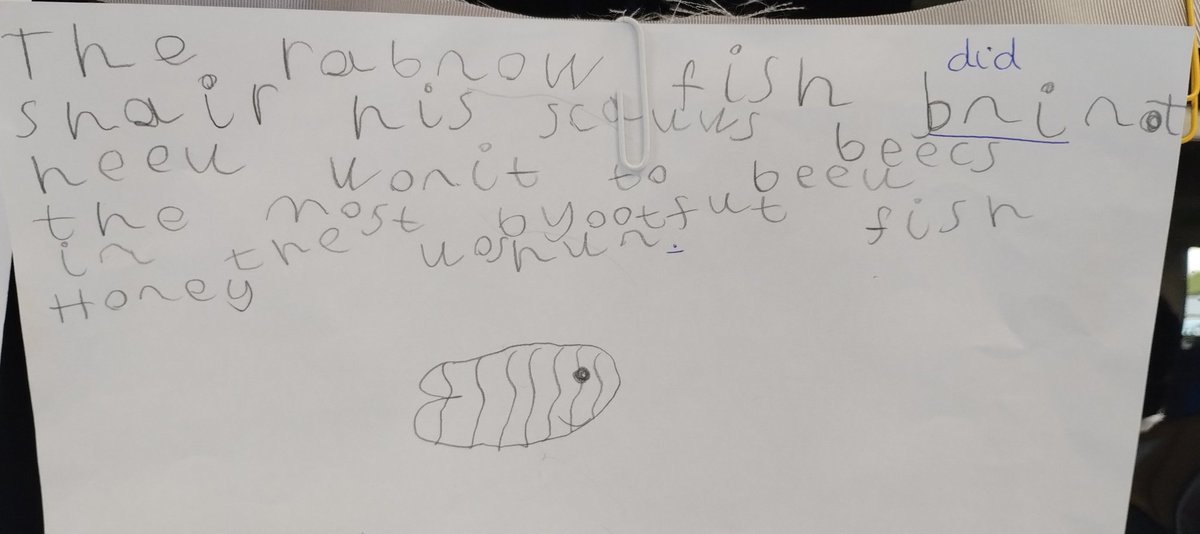 did
The rabnow fish bni not
shair his scauus beecs
heeu wonit to beeu
the most byootfut fish
in the uoshun.
Honey